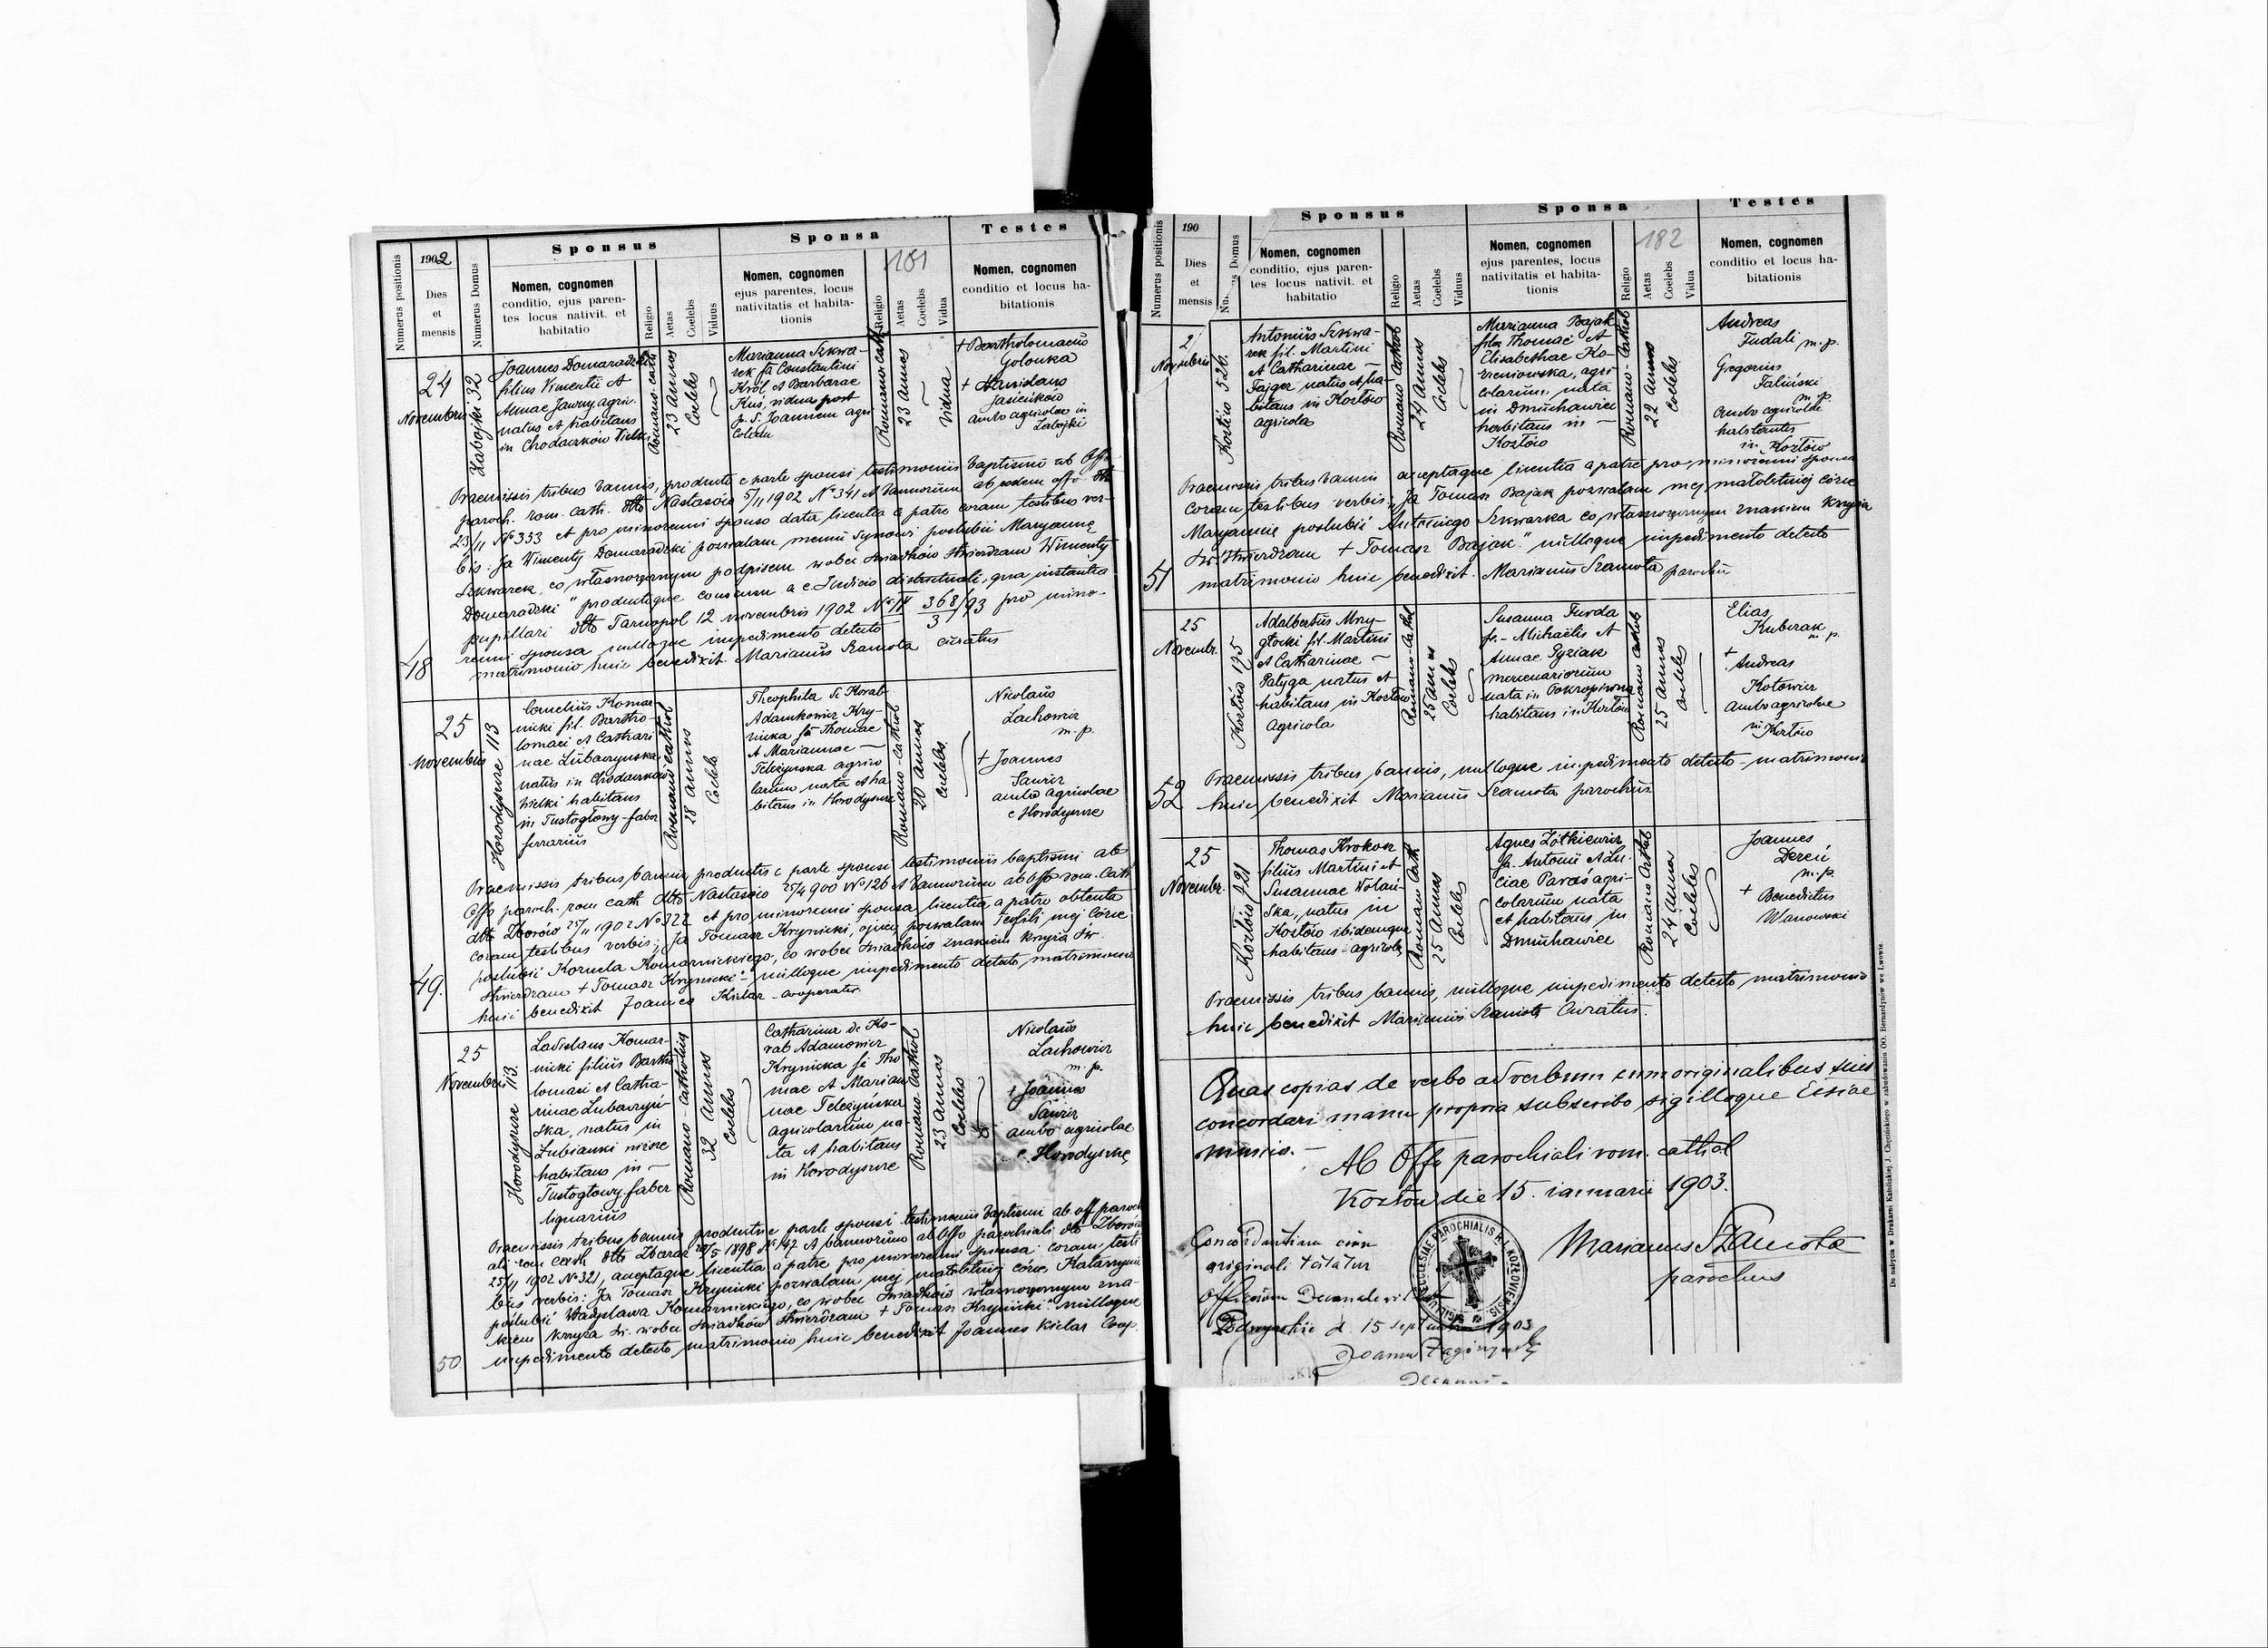 Numerus positionis
1902
Dies
et
mensis
Numerus Domus
Sponsus
Nomen, cognomen
conditio, ejus paren-
tes locus nativit. et
habitatio
Religio
Aetas
Coelebs
Viduus
Sponsa
181
Nomen, cognomen
ejus parentes, locus
nativitatis et habita-
tionis
Religio
Aetas
Coelebs
Vidua
Testes
Nomen, cognomen
conditio et locus ha-
bitationis
24
Novembris
Zabojki 32
Joannes Domaradzki
filius Vimentii et
Annae Jawny, agric.
natus et habitans
in Chodaczków Wielki
Romano-cath
23 annos
Coelebs
Marianna Szkwa-
rek fa Constantini
Król et Barbarae
Kuś, vidua post
p. d. Joannem agri
colam
Romano-cath
23 annos
Vidua
+ Bartholomaeus
Golonka
+ Stanislaus
Jasieńków
ambo agricolae in
Zabojki
Praemissis tribus bannis, producto e parte sponsi testimonii baptismi ab Offo
paroch. rom. cath. dtto Nastasów 5/11 1902 No 341 et bannorum ab eodem offo dtto
23/11 No 353 et pro minorenni sponso data licentia a patre coram testibus ver-
bis: Ja Wimenty Domaradzki pozwalam memu synowi poslubić Maryannę
Szkwarek, co własnoręcznym podpisem wobec świadków stwierdzam Wimenty
Domaradzki" productoque consensu a c. Judicio districtuali, qua instantia
pupillari dtto Tarnopol 12 novembris 1902 No IV 368/93 pro mino-
3
renni sponsa nulloque impedimento detecto
48 matrimonio huic benedixit Marianus Szamota curatus
25
Novembris
Horodyszcze 113
Cornelius Komar
nicki fil. Bartho-
lomaei et Cathari
nae Lubaczynska
natus in Chodaczków
Wielki habitans
in Tustogłowy-faber
ferrarius
Romano cathol
28 annos
Coelebs
Theophila de Korab
Adamkowicz Kry-
nicka fa Thomae
et Mariannae —
Teleżynska agrico
larum nata et ha
bitans in Horodyszcze
Romano-cathol
20 annos
Coelebs
Nicolaus
Lachowicz
m.p.
+ Joannes
Sawicz
ambo agricolae
e Horodyszcze
Praemissis tribus bannis productis e parte sponsi testimonii baptismi ab
Offo paroch. rom cath dtto Nastasów 25/4 900 No 126 et bannorum ab Offo rom. cath
dtto Zborów 25/11 1902 No 322 et pro minorenni sponsa licentia a patre obtenta
coram testibus verbis: Ja Tomasz Krynicki, ojciec pozwalam Teofili mej córce
poślubić Kornela Komarnickiego, co wobec świadków znakiem krzyża św.
stwierdzam + Tomasz Krynicki" nulloque impedimento detecto, matrimonio
49. huic benedixit Joannes Kielar - cooperator
25
Novembris
Horodyszcze 113.
Ladislaus Komar-
nicki filius Bartho
lomaei et Catha-
rinae Lubaczyń-
ska, natus in
Łubianki niższe
habitans in —
Tustogłowy faber
lignarius
Romano-catholicus
32 annos
Coelebs
Catharina de Ko-
rab Adamowicz
Krynicka fa Tho
mae et Marian
nae Teleżyńska
agricolarum na-
ta et habitans
in Horodyszcze
Romano-cathol
23 annos
Coelebs
Nicolaus
Lachowicz
m.p.
+ Joannes
Sawicz
ambo agricolae
e. Horodyszcze
Praemissis tribus bannis productisque parte sponsi testimonii baptismi ab off paroch
ali rom cath dtto Zbaraż 20/5 1898 No 147 et bannorum ab Offo parochiali dto Zborów
25/11 1902 No 321, acceptaque licentia a patre pro minorenni sponsa: coram testi
bus verbis: Ja Tomasz Krynicki pozwalam mej małoletniej córce Katarzynie
poślubić Władysława Komarnickiego, co wobec świadków własnoręcznym zna-
kiem krzyża św. wobec świadków stwierdzam + Tomasz Krynicki" nulloque
50. impedimento detecto matrimonio huic benedixit Joannes Kielar Coop.
Numerus positionis
190
Dies
et
mensis
Domus
Sponsus
Nomen, cognomen
conditio, ejus paren-
tes locus nativit. et
habitatio
Religio
Aetas
Coelebs
Viduus
Sponsa
182
Nomen, cognomen
ejus parentes, locus
nativitatis et habita-
tionis
Religio
Aetas
Coelebs
Vidua
Testes
Nomen, cognomen
conditio et locus ha-
bitationis
2
Novembris
Kozłów 526.
Antonius Szkwa-
rek fil. Martini
et Catharinae —
Fajger natus et ha
bitans in Kozłów
agricola
Romano Cathol
24 annos
Coelebs
Marianna Bajak
filia Thomae et
Elisabethae Ko-
rzeniowska, agri
colarum, nata
in Dmuchawiec
habitans in —
Kozłów
Romano-Cathol
22 annos
Coelebs
Andreas
Judali m.p.
Gregorius
Faliński
m.p.
ambo agricolae
habitantes
in Kozłów
Praemissis tribus bannis acceptaque licentia a patre pro minorenni sponsa
coram testibus verbis: „Ja Tomasz Bajak pozwalam mej małoletniej córce
Maryannie poślubić Antoniego Szkwarka co własnoręcznym znakiem krzyża
św. stwierdzam + Tomasz Bajak." nulloque impedimento detecto
51 matrimonio huic benedixit. Marianus Szamota parochus
25
Novembr.
Kozłów 195
Adalbertus Mry-
głocki fil. Martini
et Catharinae —
Patyga natus et
habitans in Kozłów
Agricola
Romano-Cathol
25 annos
Coelebs
Susanna Furda
fa.- Michaëlis et
Annae Pyziak
mercenariorum
nata in Pokropiwna
habitans in Kozłów
Romano Cathol
25 annos
Coelebs
Elias
Kubczak
m.p.
+ Andreas
Kotowicz
ambo agricolae
in Kozłów
Praemissis tribus bannis, nulloque impedimento detecto - matrimonio
52 huic benedixit Marianus Szamota parochus
25
Novembr.
Kozłów 421
Thomas Krokosz
filius Martini et
Susannae Wolań-
ska, natus in
Kozłów ibidemque
habitans - agricola
Romano Cath
25 annos
Coelebs
Agnes Żółkiewicz
fa. Antonii et Lu-
ciae Paraś agri-
colarum nata
et habitans in
Dmuchawiec
Romano Cathol
24 annos
Coelebs
Joannes
Dereń
m.p.
+ Benedictus
Ulanowski
Praemissis tribus bannis, nulloque impedimento detecto matrimonio
huic benedixit Marianus Szamota Curatus.
Quas copias de verbo ad verbum cum originalibus suis
concordari manu propria subscribo sigilloque Eccliae
munio.-
Ab Offo parochiali rom. cathol
Kozłów die 15. ianuarii 1903.
Marianus Szamota
parochus
Concordantiam cum
originali testatur
Officium Decanale
d. 15 septembr 1903
Decanus
SIGILLUM ECCLESIAE PAROCHIALIS R. L. KOZŁOVIENSIS
Do nabycia w Drukarni Katolickiej J. Chęcińskiego w zabudowaniu OO. Bernardynów we Lwowie